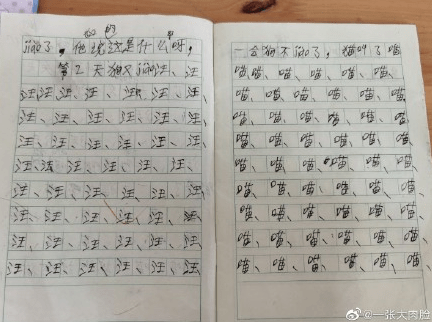 jiao了。他说这是什么呀。
第2天狗又jiao汪、汪
汪汪、汪、汪、汪、汪、汪、
汪、汪、汪、汪、汪、汪、
汪、汪、汪、汪、汪、汪、
汪、汪、汪、汪、汪、汪、
汪、汪、汪、汪、汪、汪
汪、汪、汪、汪、汪、汪
汪、汪、汪、汪、汪、汪
汪、汪、汪、汪、汪、汪
一会狗不jiao了，猫叫了喵
喵、喵、喵、喵、喵、喵、
喵、喵、喵、喵、喵、喵
喵、喵、喵、喵、喵、喵、
喵、喵、喵、喵、喵、喵、
喵、喵、喵、喵、喵、喵、
喵、喵、喵、喵、喵、喵
喵、喵、喵、喵、喵、喵、
喵、喵、喵、喵、喵、喵、
喵、喵、喵、喵、喵、喵
@一张大肉脸